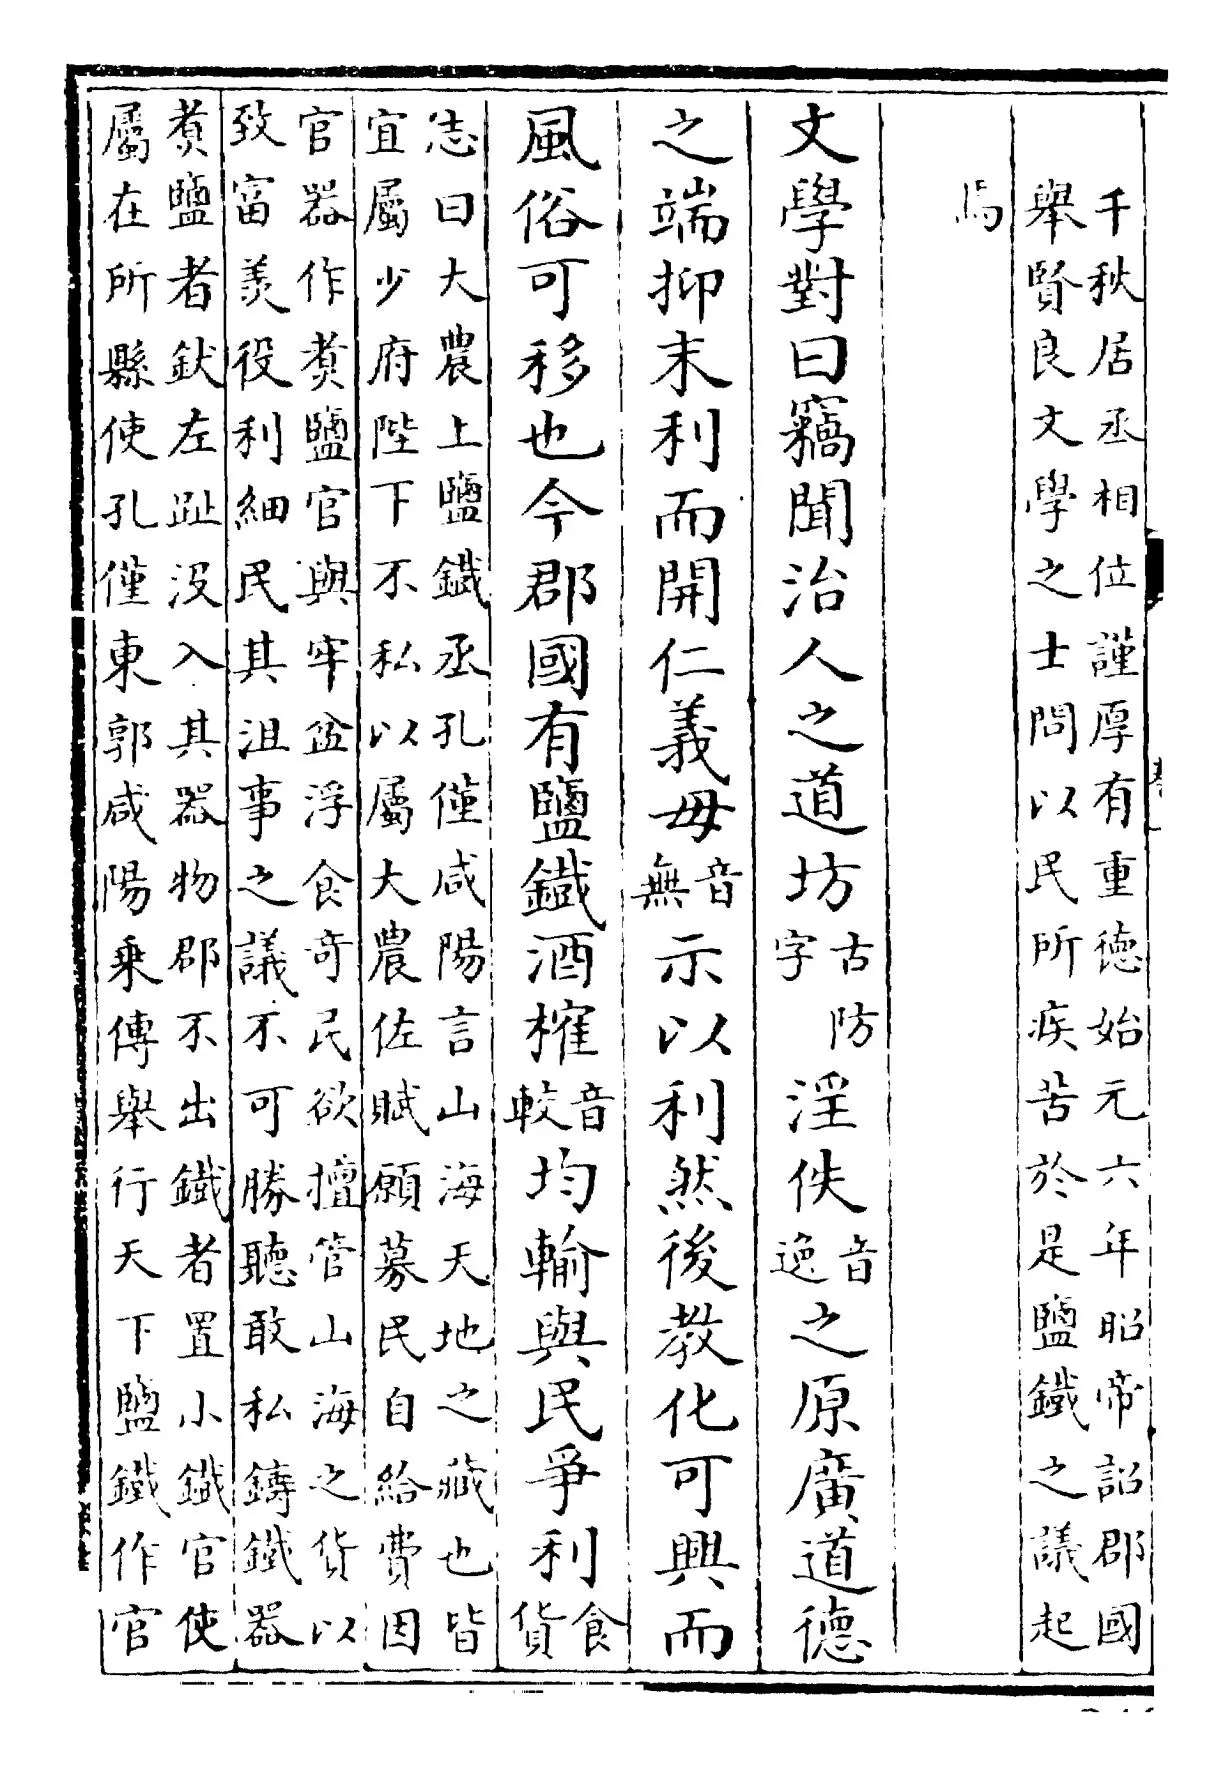 千秋居丞相位謹厚有重德始元六年昭帝詔郡國
舉賢良文學之士問以民所疾苦於是鹽鐵之議起
焉
文學對曰竊聞治人之道坊古防字淫佚音逸之原廣道德
之端抑末利而開仁義毋音無示以利然後教化可興而
風俗可移也今郡國有鹽鐵酒榷音較均輸與民爭利食貨
志曰大農上鹽鐵丞孔僅咸陽言山海天地之藏也皆
宜屬少府陛下不私以屬大農佐賦願募民自給費因
官器作煑鹽官與牢盆浮食奇民欲擅管山海之貨以
致富羨役利細民其沮事之議不可勝聽敢私鑄鐵器
煑鹽者釱左趾沒入其器物郡不出鐵者置小鐵官使
屬在所縣使孔僅東郭咸陽乗傳舉行天下鹽鐵作官